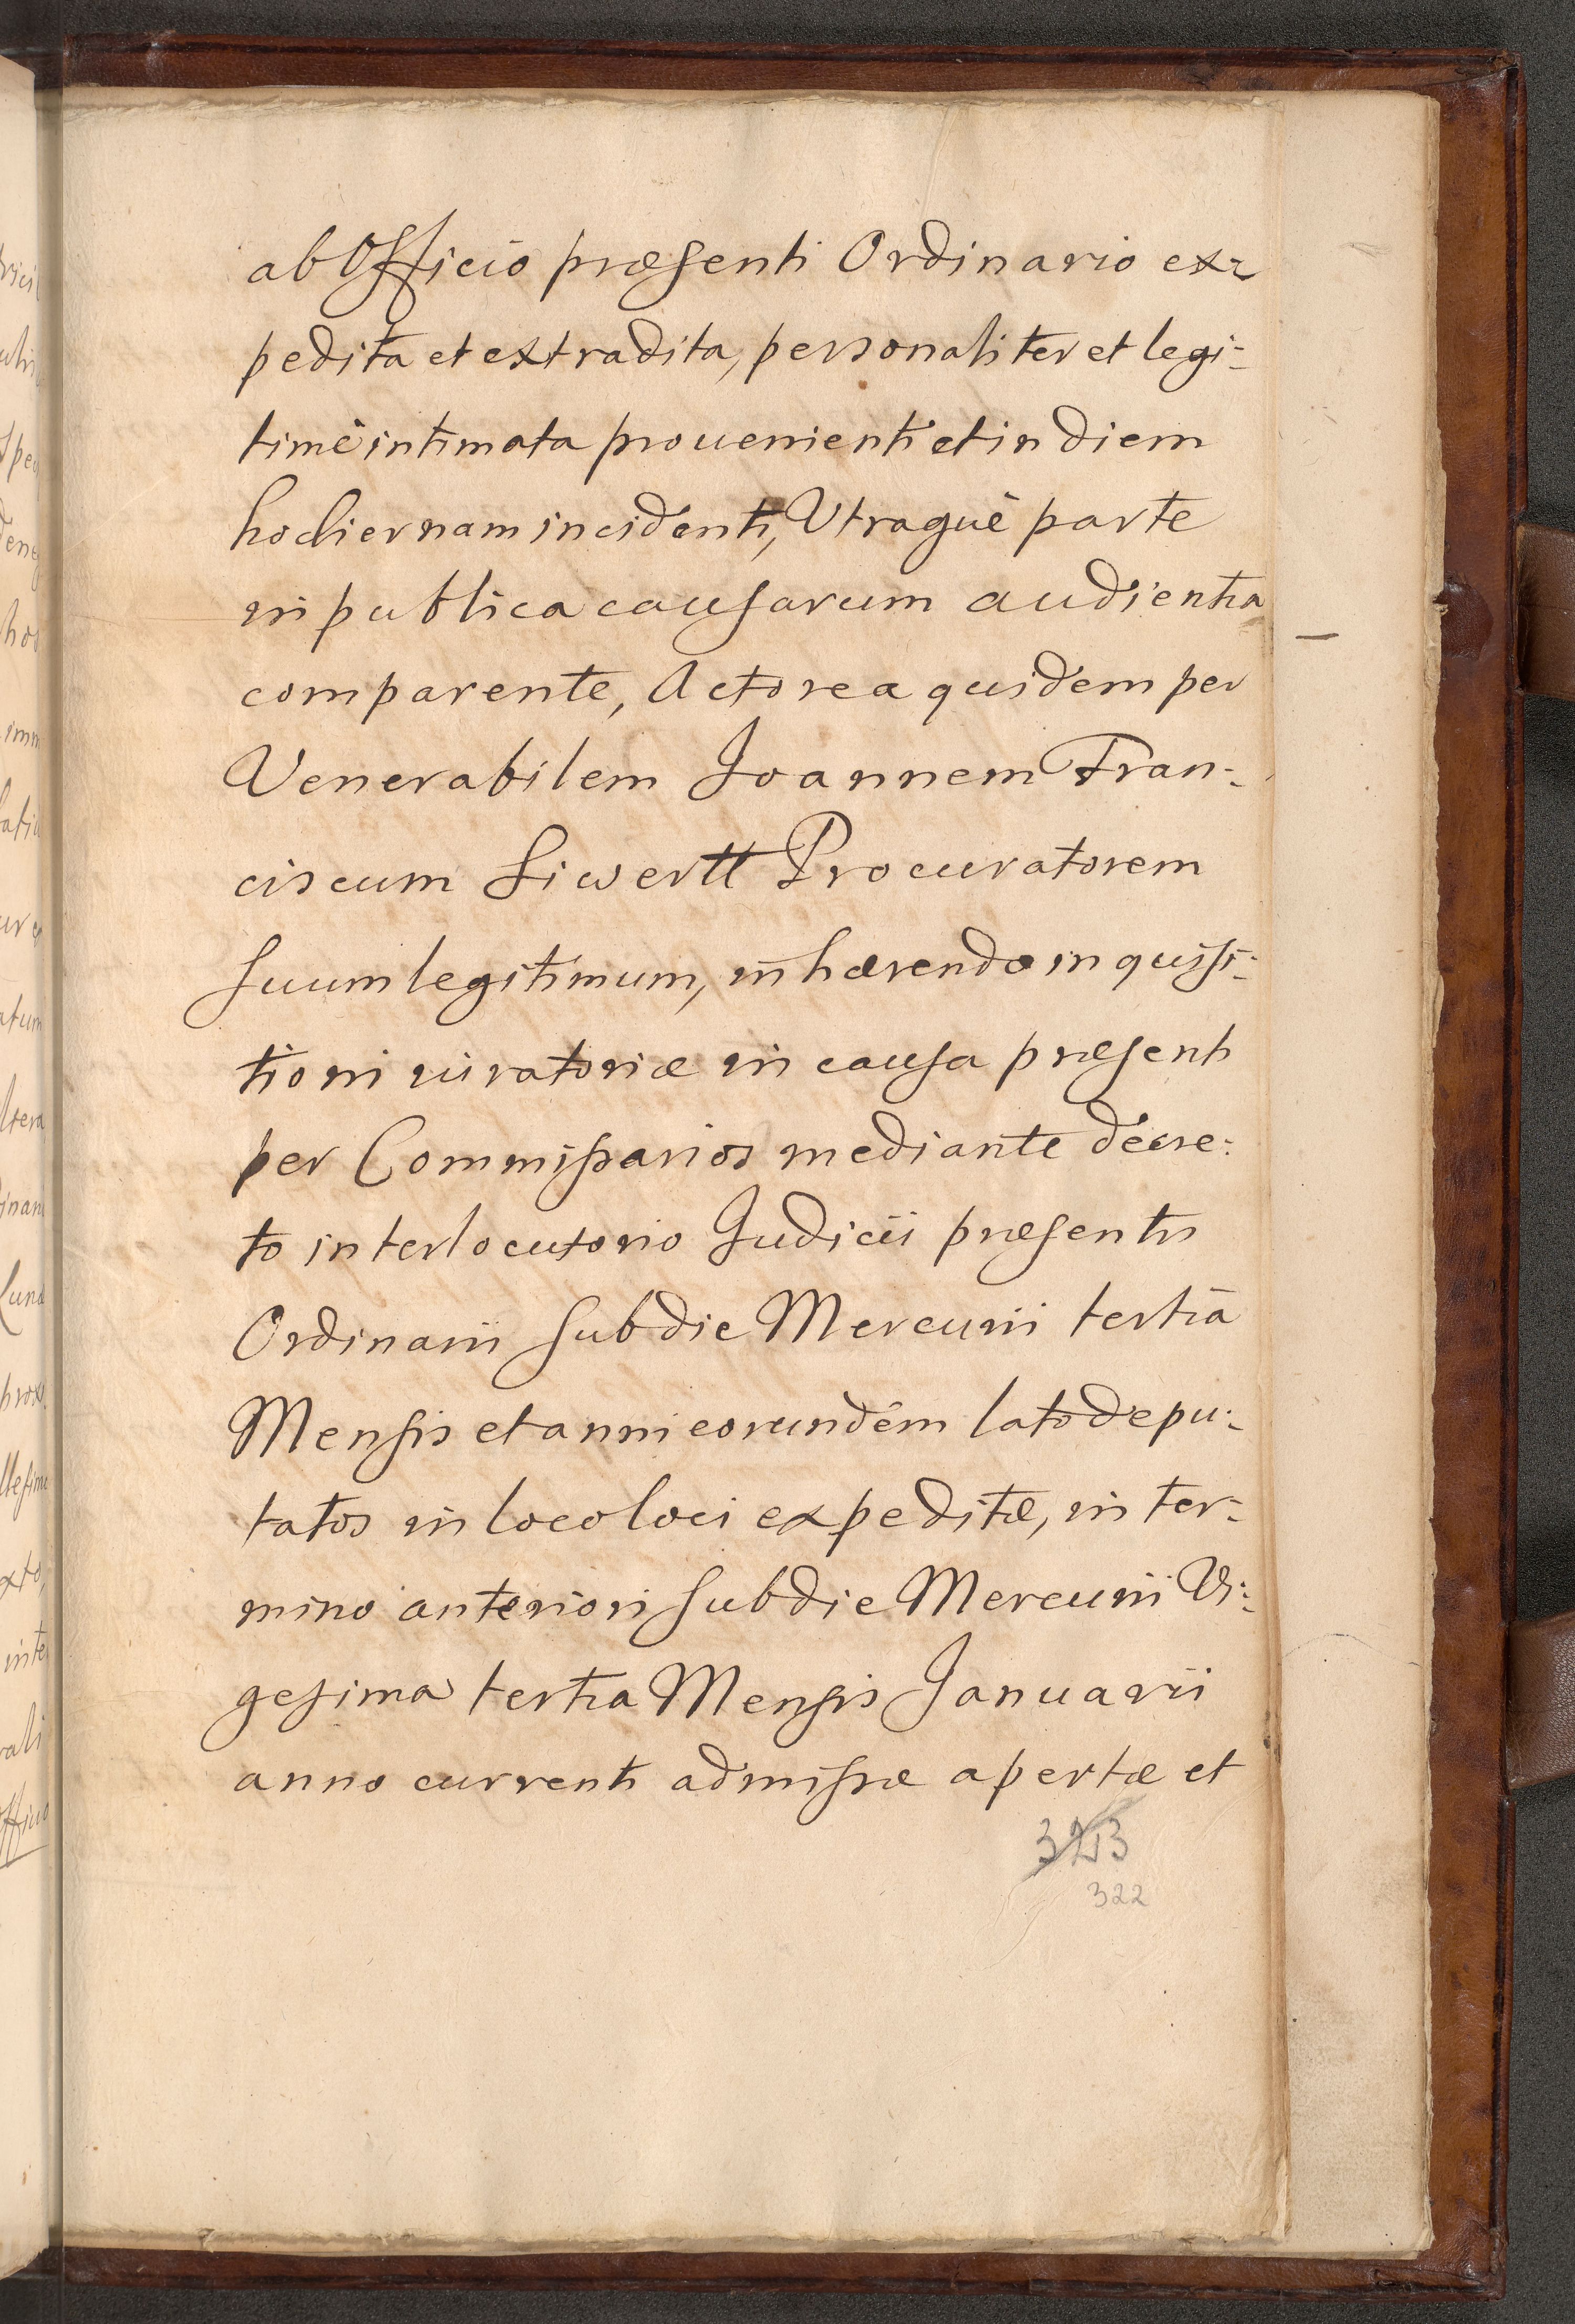 ab Officio præsenti Ordinario ex-
pedita et extradita, personaliter et legi-
timè intimata provenienti et in diem
hodiernam incidenti, Utraquè parte
in publica causarum audientia
comparente, Actorea quidem per
Venerabilem Joannem Fran-
ciscum Siwertt Procuratorem
suum legitimum, inhærendo inquisi-
tioni iuratoriæ in causa præsenti
per Commissarios mediante decre-
to interlocutorio Judicii præsentis
Ordinarii sub die Mercurii tertiâ
Mensis et anni eorundem lato depu-
tatos in loco loci expeditæ, in ter-
mino anteriori sub die Mercurii Vi-
gesima tertia Mensis Januarii
anno currenti admissæ apertæ et
323
322